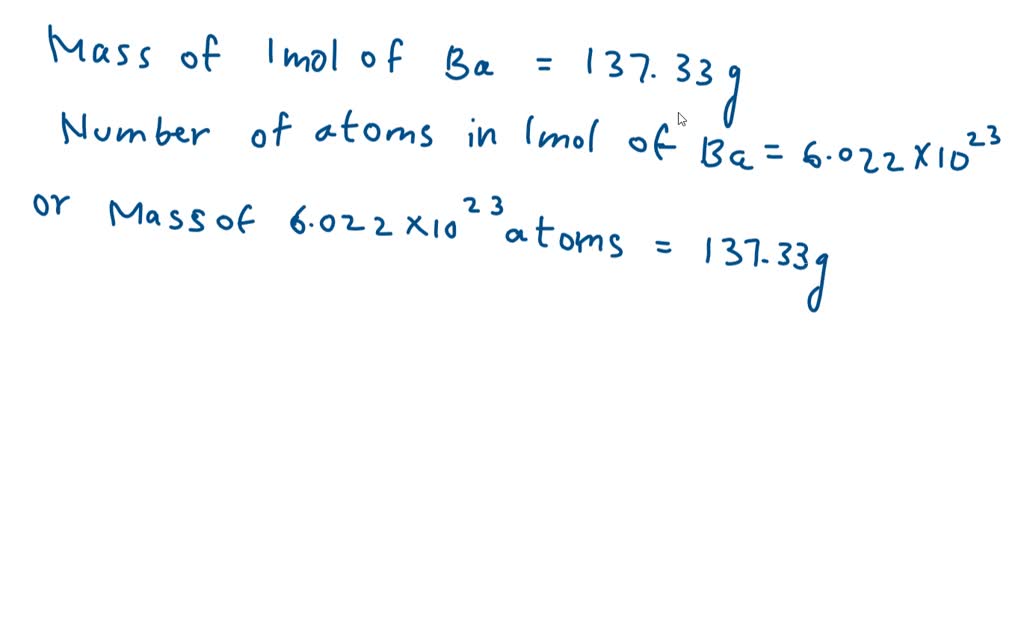 Mass of 1mol of Ba = 137.33g
Number of atoms in 1mol of Ba = 6.022 × 10²³
or Mass of 6.022 × 10²³ atoms = 137.33g